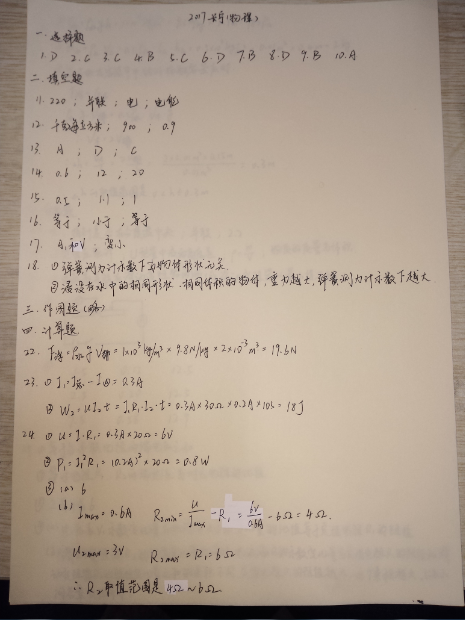 2017 长宁(物理)
一. 选择题
1. D 2. C 3. C 4. B 5. C 6. D 7. B 8. D 9. B 10. A
二. 填空题
11. 220 ; 并联 ; 电 ; 电能
12. 千克每立方米 ; 900 ; 0.9
13. A ; D ; C
14. 0.6 ; 12 ; 20
15. 0.5 ; 1:1 ; 1
16. 等于 ; 小于 ; 等于
17. A₁和V ; 变小
18. ① 弹簧测力计示数下与物体形状无关.
② 浸没在水中的相同形状、相同体积的物体, 重力越大, 弹簧测力计示数下越大.
三. 作图题 (略)
四. 计算题
22. F浮=ρ水gV排=1×10³kg/m³×9.8N/kg×2×10⁻³m³=19.6N
23. ① I₁=I总-I₂=0.3A
② W₂=UI₂t=I₁R₁·I₂·t=0.3A×30Ω×0.2A×10s=18J
24. ① U=I·R₁=0.3A×20Ω=6V
② P₁=I₁²R₁=(0.2A)²×20Ω=0.8W
③ (a) 6
(b) Imax=0.6A R₂min=U/Imax-R₁=6V/0.6A-6Ω=4Ω.
U₂max=3V R₂max=R₁=6Ω
∴ R₂取值范围是 4Ω~6Ω